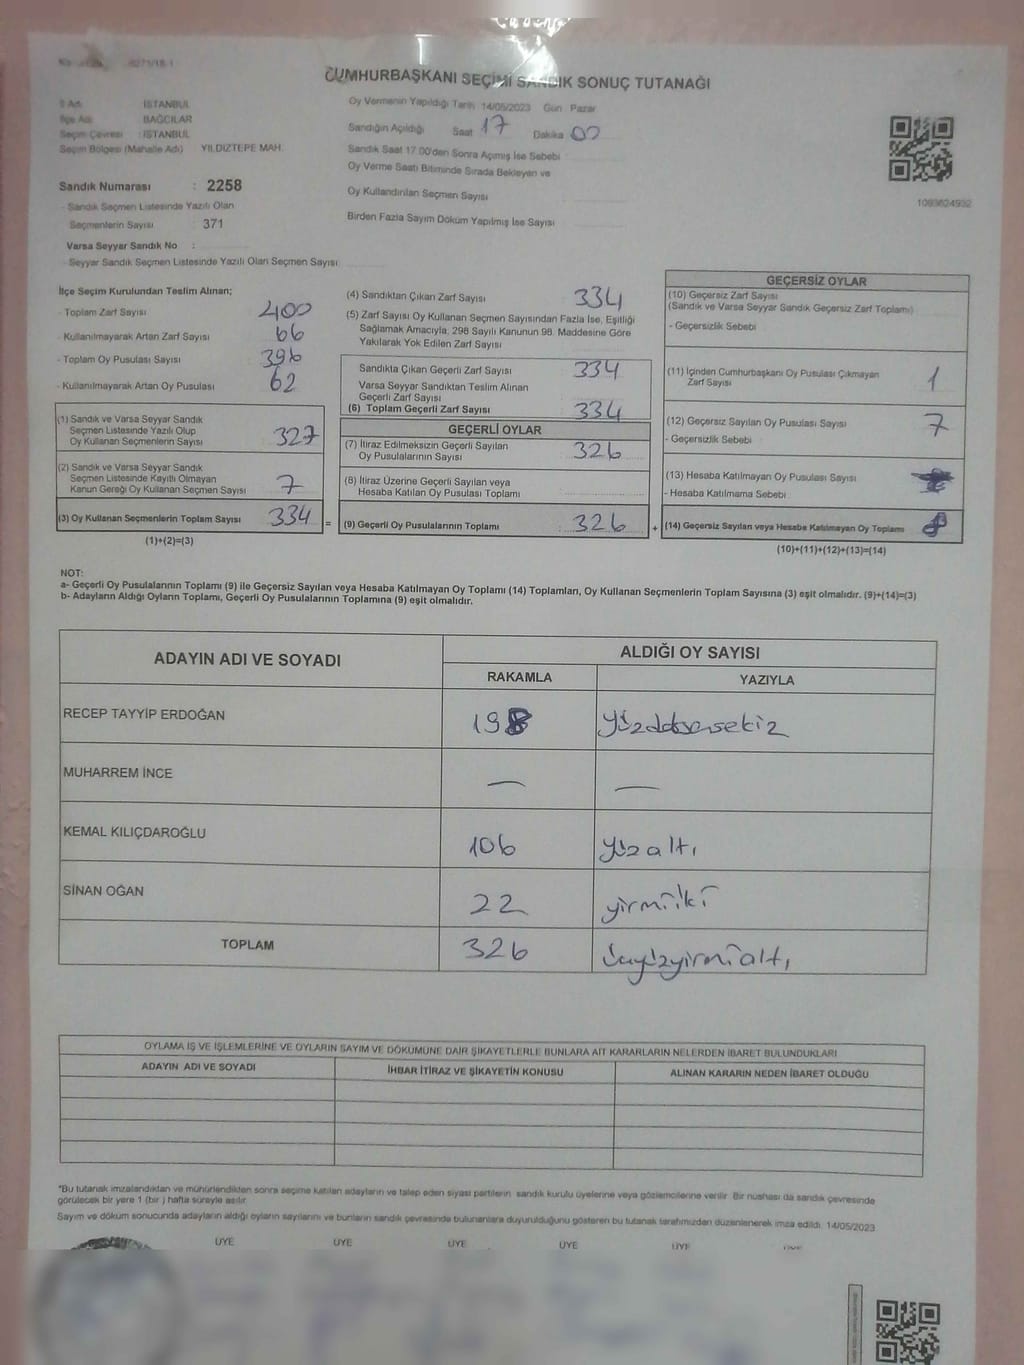 CUMHURBAŞKANI SEÇİMİ SANDIK SONUÇ TUTANAĞI
İl Adı : İSTANBUL
İlçe Adı : BAĞCILAR
Seçim Çevresi : İSTANBUL
Seçim Bölgesi (Mahalle Adı) YILDIZTEPE MAH.
Sandık Numarası : 2258
- Sandık Seçmen Listesinde Yazılı Olan
Seçmenlerin Sayısı : 371
Varsa Seyyar Sandık No :
- Seyyar Sandık Seçmen Listesinde Yazılı Olan Seçmen Sayısı:
Oy Vermenin Yapıldığı Tarih 14/05/2023 Gün Pazar
Sandığın Açıldığı Saat 17 Dakika 00
Sandık Saat 17.00'den Sonra Açımış İse Sebebi :
Oy Verme Saati Bitiminde Sırada Bekleyen ve
Oy Kullandırılan Seçmen Sayısı
Birden Fazla Sayım Döküm Yapılmış İse Sayısı
1093624932
İlçe Seçim Kurulundan Teslim Alınan;
- Toplam Zarf Sayısı : 400
- Kullanılmayarak Artan Zarf Sayısı : 66
- Toplam Oy Pusulası Sayısı : 396
- Kullanılmayarak Artan Oy Pusulası : 62
(1) Sandık ve Varsa Seyyar Sandık
Seçmen Listesinde Yazılı Olup
Oy Kullanan Seçmenlerin Sayısı : 327
(2) Sandık ve Varsa Seyyar Sandık
Seçmen Listesinde Kayıtlı Olmayan
Kanun Gereği Oy Kullanan Seçmen Sayısı : 7
(3) Oy Kullanan Seçmenlerin Toplam Sayısı : 334 =
(1)+(2)=(3)
(4) Sandıktan Çıkan Zarf Sayısı : 334
(5) Zarf Sayısı Oy Kullanan Seçmen Sayısından Fazla İse, Eşitliği
Sağlamak Amacıyla, 298 Sayılı Kanunun 98. Maddesine Göre
Yakılarak Yok Edilen Zarf Sayısı :
Sandıkta Çıkan Geçerli Zarf Sayısı : 334
Varsa Seyyar Sandıktan Teslim Alınan
Geçerli Zarf Sayısı :
(6) Toplam Geçerli Zarf Sayısı : 334
GEÇERLİ OYLAR
(7) İtiraz Edilmeksizin Geçerli Sayılan
Oy Pusulalarının Sayısı : 326
(8) İtiraz Üzerine Geçerli Sayılan veya
Hesaba Katılan Oy Pusulası Toplamı :
(9) Geçerli Oy Pusulalarının Toplamı : 326 +
GEÇERSİZ OYLAR
(10) Geçersiz Zarf Sayısı :
(Sandık ve Varsa Seyyar Sandık Geçersiz Zarf Toplamı)
- Geçersizlik Sebebi :
(11) İçinden Cumhurbaşkanı Oy Pusulası Çıkmayan
Zarf Sayısı : 1
(12) Geçersiz Sayılan Oy Pusulası Sayısı : 7
- Geçersizlik Sebebi :
(13) Hesaba Katılmayan Oy Pusulası Sayısı
- Hesaba Katılmama Sebebi :
(14) Geçersiz Sayılan veya Hesaba Katılmayan Oy Toplamı : 8
(10)+(11)+(12)+(13)=(14)
NOT:
a- Geçerli Oy Pusulalarının Toplamı (9) ile Geçersiz Sayılan veya Hesaba Katılmayan Oy Toplamı (14) Toplamları, Oy Kullanan Seçmenlerin Toplam Sayısına (3) eşit olmalıdır. (9)+(14)=(3)
b- Adayların Aldığı Oyların Toplamı, Geçerli Oy Pusulalarının Toplamına (9) eşit olmalıdır.
ADAYIN ADI VE SOYADI
ALDIĞI OY SAYISI
RAKAMLA YAZIYLA
RECEP TAYYİP ERDOĞAN 198 Yüzdoksansekiz
MUHARREM İNCE — —
KEMAL KILIÇDAROĞLU 106 Yüzaltı
SİNAN OĞAN 22 yirmiiki
TOPLAM 326 üçyüzyirmialtı
OYLAMA İŞ VE İŞLEMLERİNE VE OYLARIN SAYIM VE DÖKÜMÜNE DAİR ŞİKAYETLERLE BUNLARA AİT KARARLARIN NELERDEN İBARET BULUNDUKLARI
ADAYIN ADI VE SOYADI İHBAR İTİRAZ VE ŞİKAYETİN KONUSU ALINAN KARARIN NEDEN İBARET OLDUĞU
"Bu tutanak imzalandıktan ve mühürlendikten sonra seçime katılan adayların ve talep eden siyasi partilerin sandık kurulu üyelerine veya gözlemcilerine verilir. Bir nüshası da sandık çevresinde
görülecek bir yere 1 (bir ) hafta süreyle asılır.
Sayım ve döküm sonucunda adayların aldığı oyların sayılarını ve bunların sandık çevresinde bulunanlara duyurulduğunu gösteren bu tutanak tarafımızdan düzenlenerek imza edildi. 14/05/2023
ÜYE ÜYE ÜYE ÜYE ÜYE ÜYE